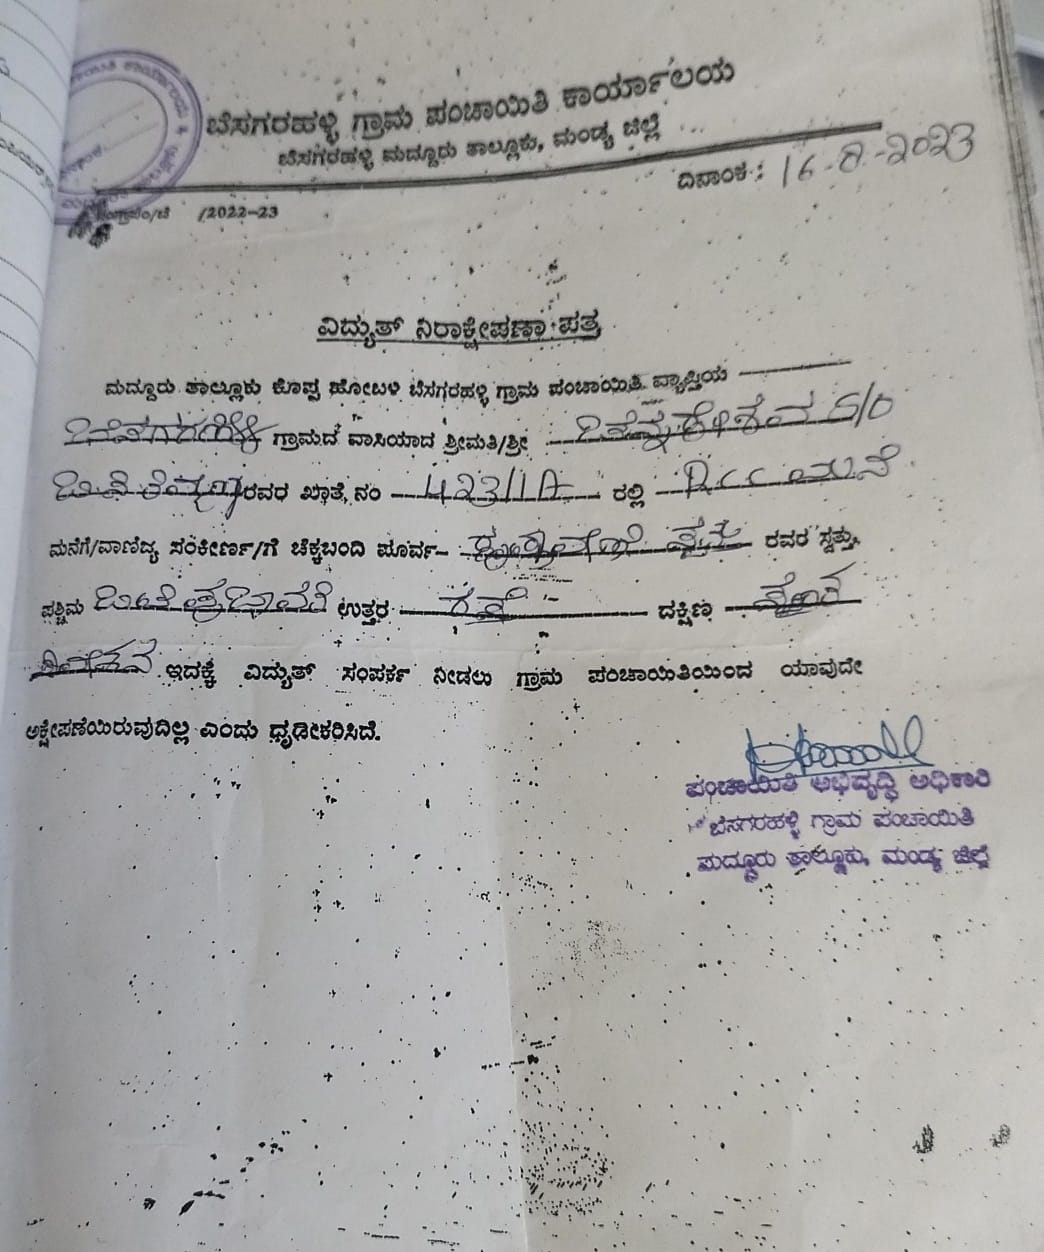 ಬೆಸಗರಹಳ್ಳಿ ಗ್ರಾಮ ಪಂಚಾಯಿತಿ ಕಾರ್ಯಾಲಯ
ಬೆಸಗರಹಳ್ಳಿ ಮದ್ದೂರು ತಾಲ್ಲೂಕು, ಮಂಡ್ಯ ಜಿಲ್ಲೆ
ದಿನಾಂಕ: 16-8-2023
/2022-23
ವಿದ್ಯುತ್ ನಿರಾಕ್ಷೇಪಣಾ ಪತ್ರ
ಮದ್ದೂರು ತಾಲ್ಲೂಕು ಕೊಪ್ಪ ಹೋಬಳಿ ಬೆಸಗರಹಳ್ಳಿ ಗ್ರಾಮ ಪಂಚಾಯಿತಿ ವ್ಯಾಪ್ತಿಯ
ಬೆಸಗರಹಳ್ಳಿ ಗ್ರಾಮದ ವಾಸಿಯಾದ ಶ್ರೀಮತಿ/ಶ್ರೀ S/O
ರವರ ಖಾತೆ ನಂ 423/1A ರಲ್ಲಿ RCC ಮನೆ
ಮನೆಗೆ/ವಾಣಿಜ್ಯ ಸಂಕೀರ್ಣ/ಗೆ ಚೆಕ್ಕಬಂದಿ ಪೂರ್ವ ರವರ ಸ್ವತ್ತು,
ಪಶ್ಚಿಮ ಉತ್ತರ ರಸ್ತೆ ದಕ್ಷಿಣ
ಇದಕ್ಕೆ ವಿದ್ಯುತ್ ಸಂಪರ್ಕ ನೀಡಲು ಗ್ರಾಮ ಪಂಚಾಯಿತಿಯಿಂದ ಯಾವುದೇ
ಅಕ್ಷೇಪಣೆಯಿರುವುದಿಲ್ಲ ಎಂದು ಧೃಡೀಕರಿಸಿದೆ.
ಪಂಚಾಯಿತಿ ಅಭಿವೃದ್ಧಿ ಅಧಿಕಾರಿ
ಬೆಸಗರಹಳ್ಳಿ ಗ್ರಾಮ ಪಂಚಾಯಿತಿ
ಮದ್ದೂರು ತಾಲ್ಲೂಕು, ಮಂಡ್ಯ ಜಿಲ್ಲೆ